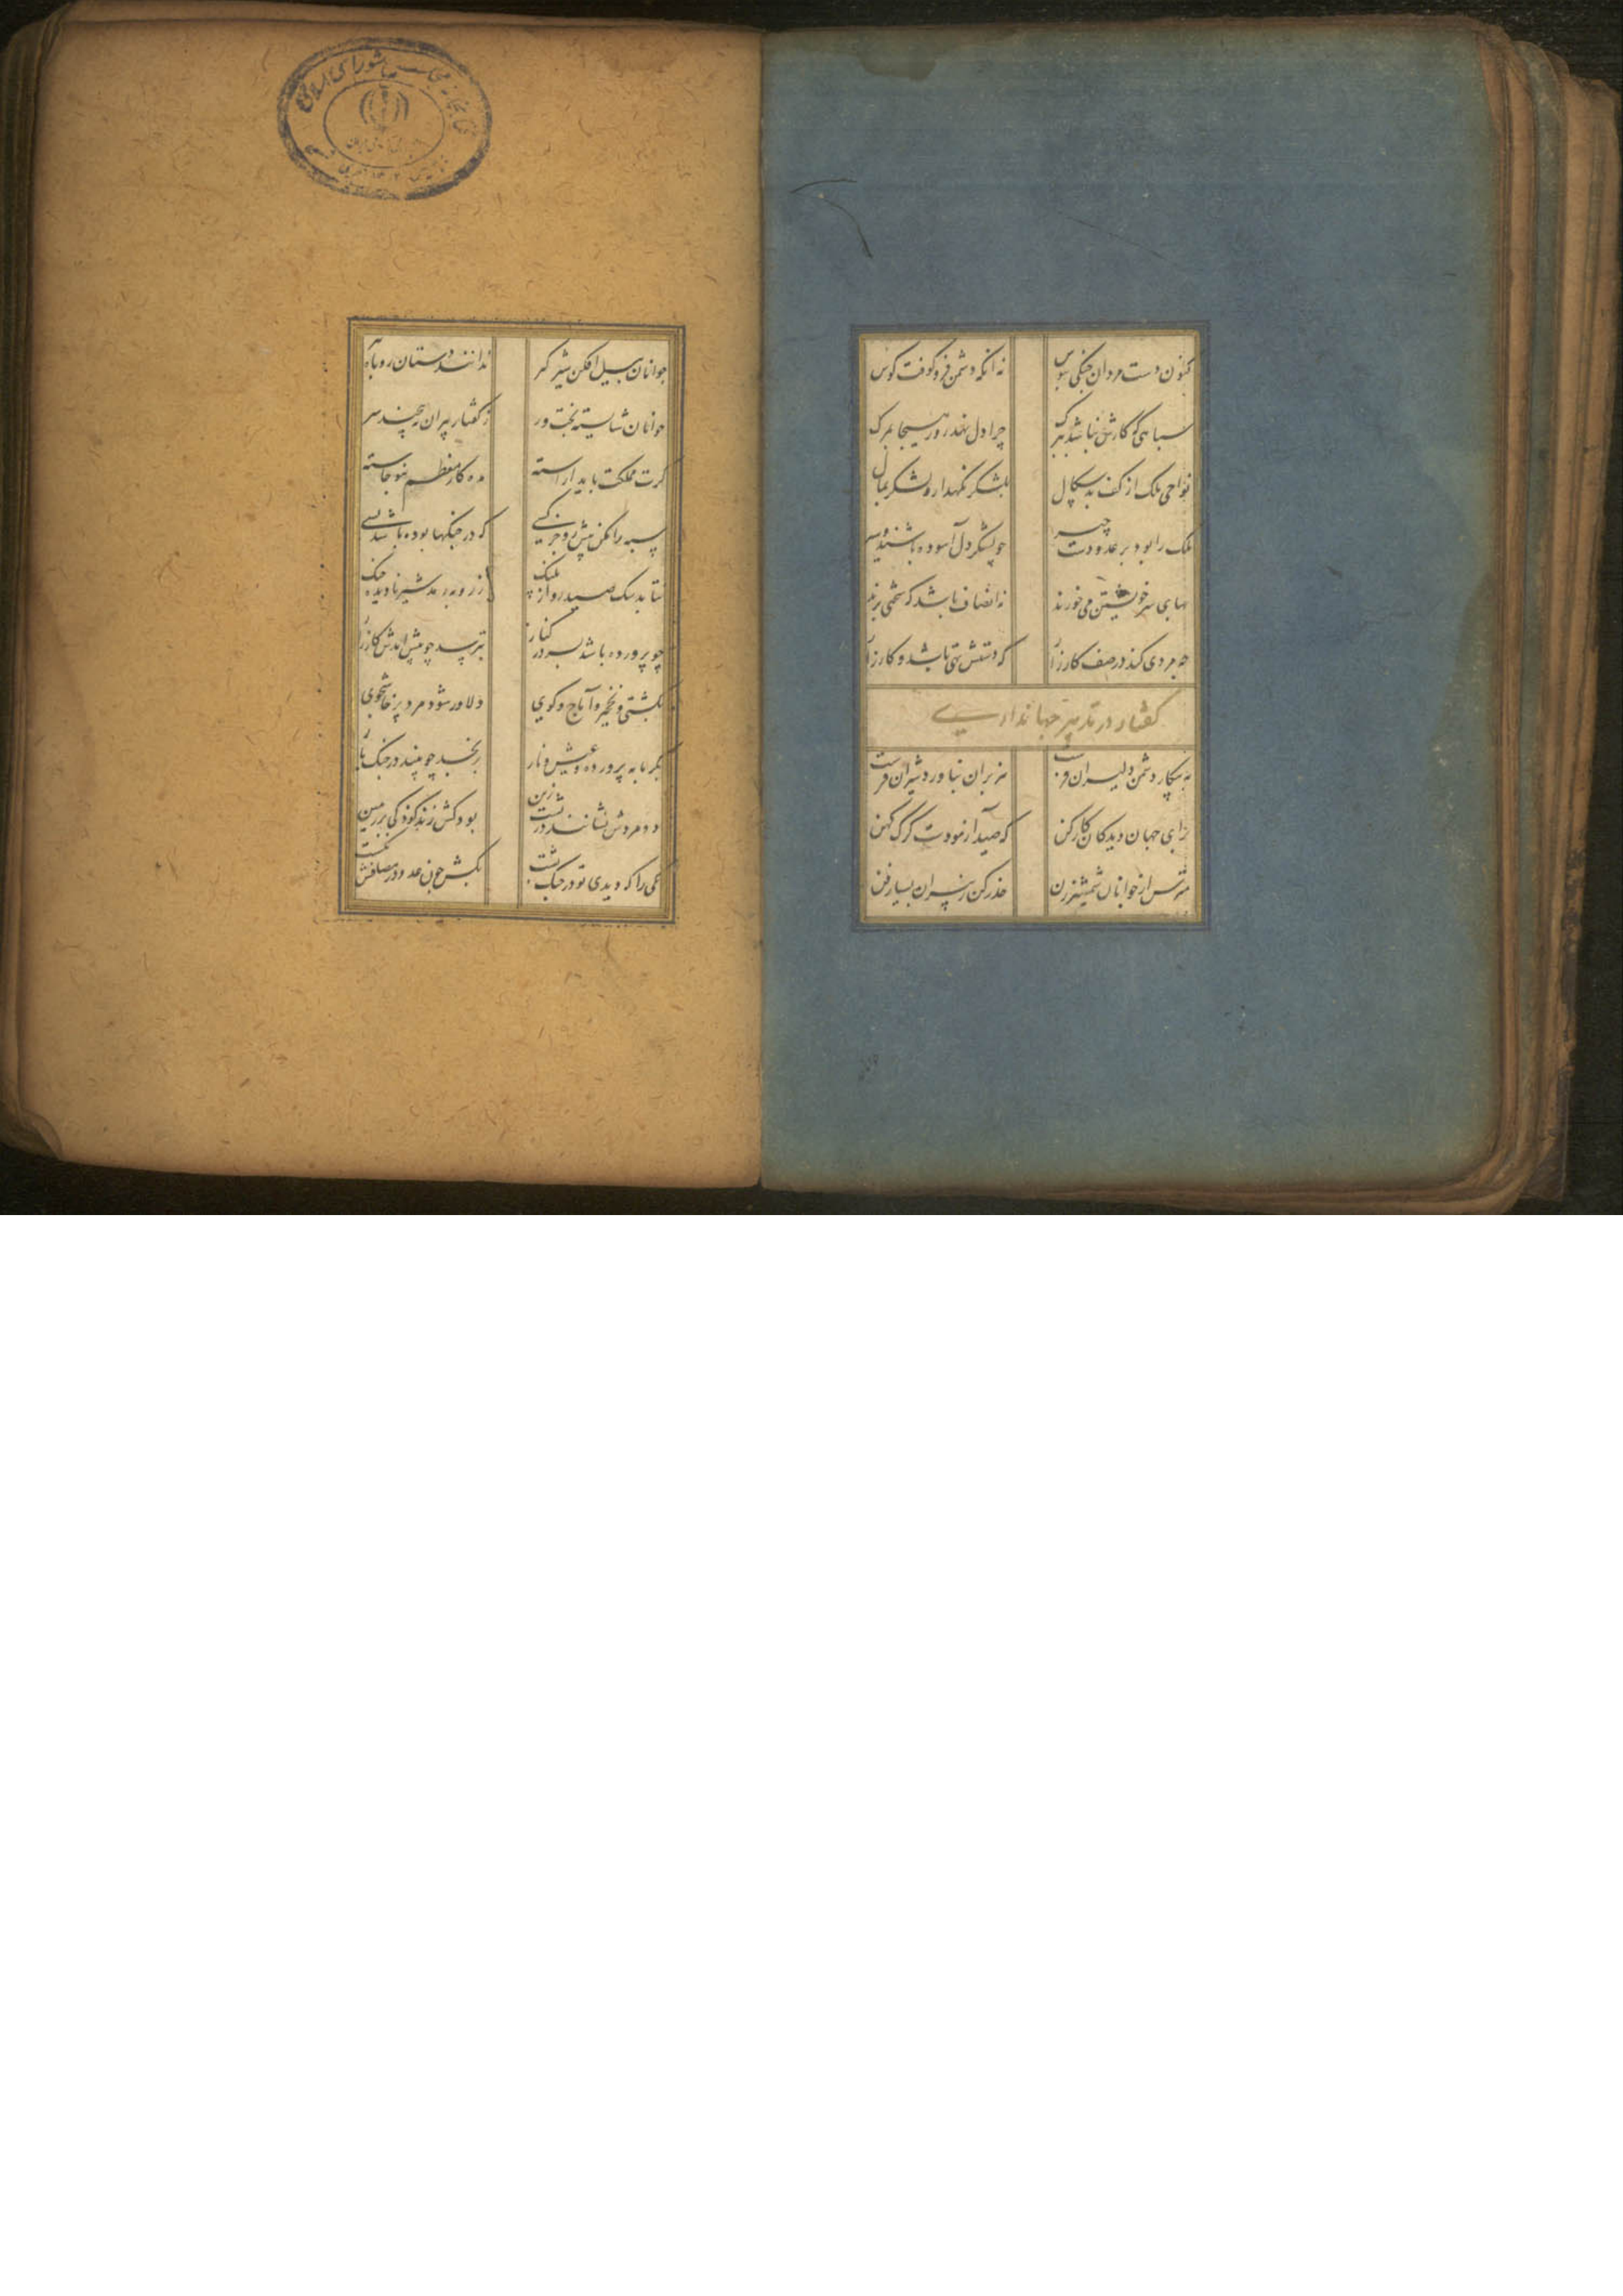 کنون دست مردان جنکی ببوس نه انکه دشمن فرو کوفت کوس
سپاهی کو کارش نباشد ببرک چرا دل نهد روز هیجا بمرک
نواحی ملک از کف بدسکال بلشکر نکهدار و لشکر بمال
ملک را بود بر عدو دست چیر چو لشکر دل آسوده باشند و سیر
بهای سر خویشتن می خورند نه انصاف باشد که سختی برند
چه مردی کند در صف کارزار که دستش تهی باشد و کارزار
کفتار در تدبیر جهانداری
به پیکار دشمن دلیران فرست هزبران بناورد شیران فرست
برای جهان دیدکان کار کن که صید ازمودست کرک کهن
مترس از جوانان شمشیرزن حذر کن ز پیران بسیار فن
جوانان پیل افکن شیر کیر ندانند دستان روباه پیر
جوانان شایسته بخت ور ز کفتار پیران نپیچند سر
کرت مملکت باید اراسته مده کار معظم بنو خاسته
سپه را مکن پیش رو جز کسی که در جنکها بوده باشد بسی
نتابد سک صید رو از پلنک ز روبه رمد شیر نادیده جنک
چو پرورده باشد پسر در کنار بترسد چو پیش ایدش کارزار
بکشتی و نخچیر و آماج و کوی دلاور شود مرد پرخاشجوی
بکرمابه پرورده و عیش و ناز برنجد چو بیند در جنک باز
دو مردش نشانند در پشت زین بود کش زند کودکی بر زمین
یکی را که دیدی تو در جنک پشت بکش چون عدو در مصافش نکشت